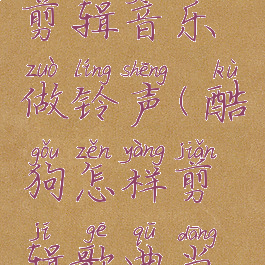 剪辑音乐
zuò líng shēng kù
做铃声(酷
gǒu zěn yàng jiǎn
狗怎样剪
jí gē qū dāng
辑歌曲当